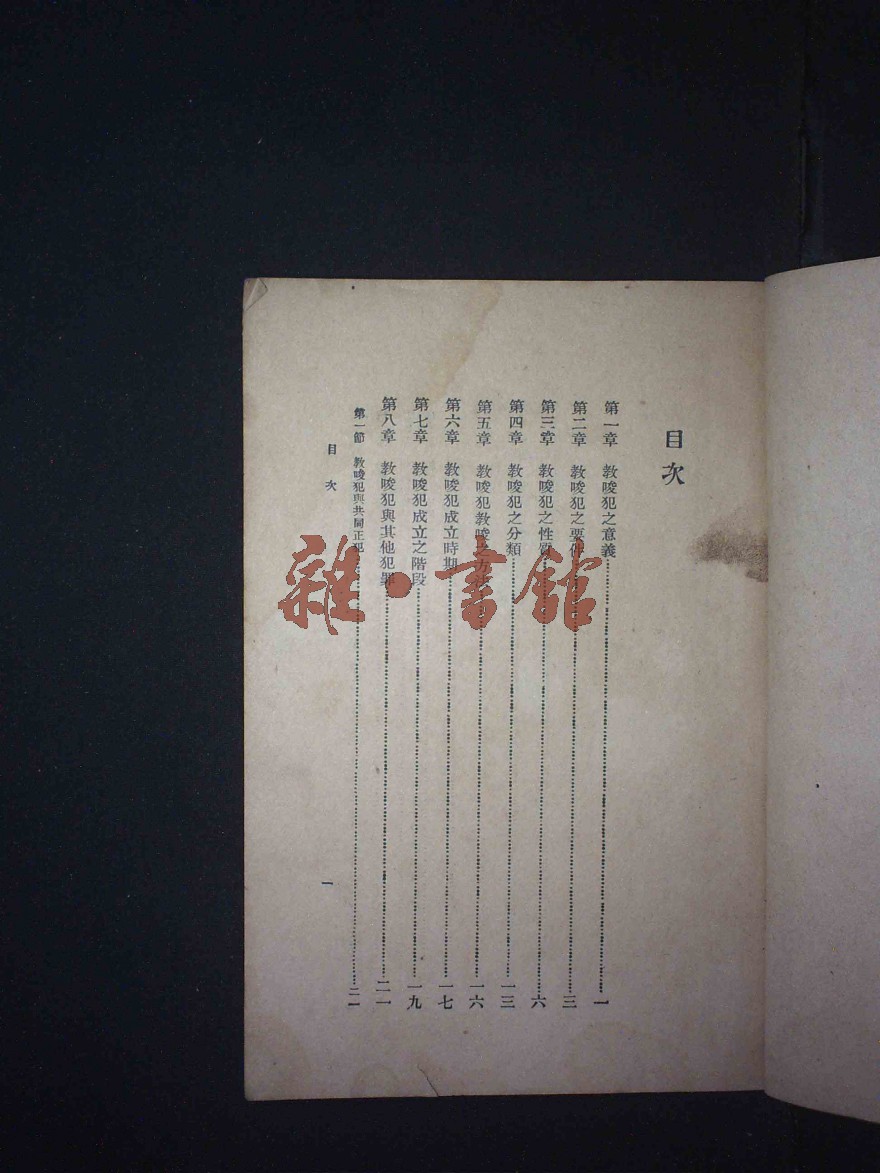 目次
第一章 教唆犯之意義 一
第二章 教唆犯之要件 三
第三章 教唆犯之性質 六
第四章 教唆犯之分類 一三
第五章 教唆犯教唆之方法 一六
第六章 教唆犯成立時期 一七
第七章 教唆犯成立之階段 一九
第八章 教唆犯與其他犯罪 二一
第一節 教唆犯與共同正犯 二一
目次 一
雜·書館